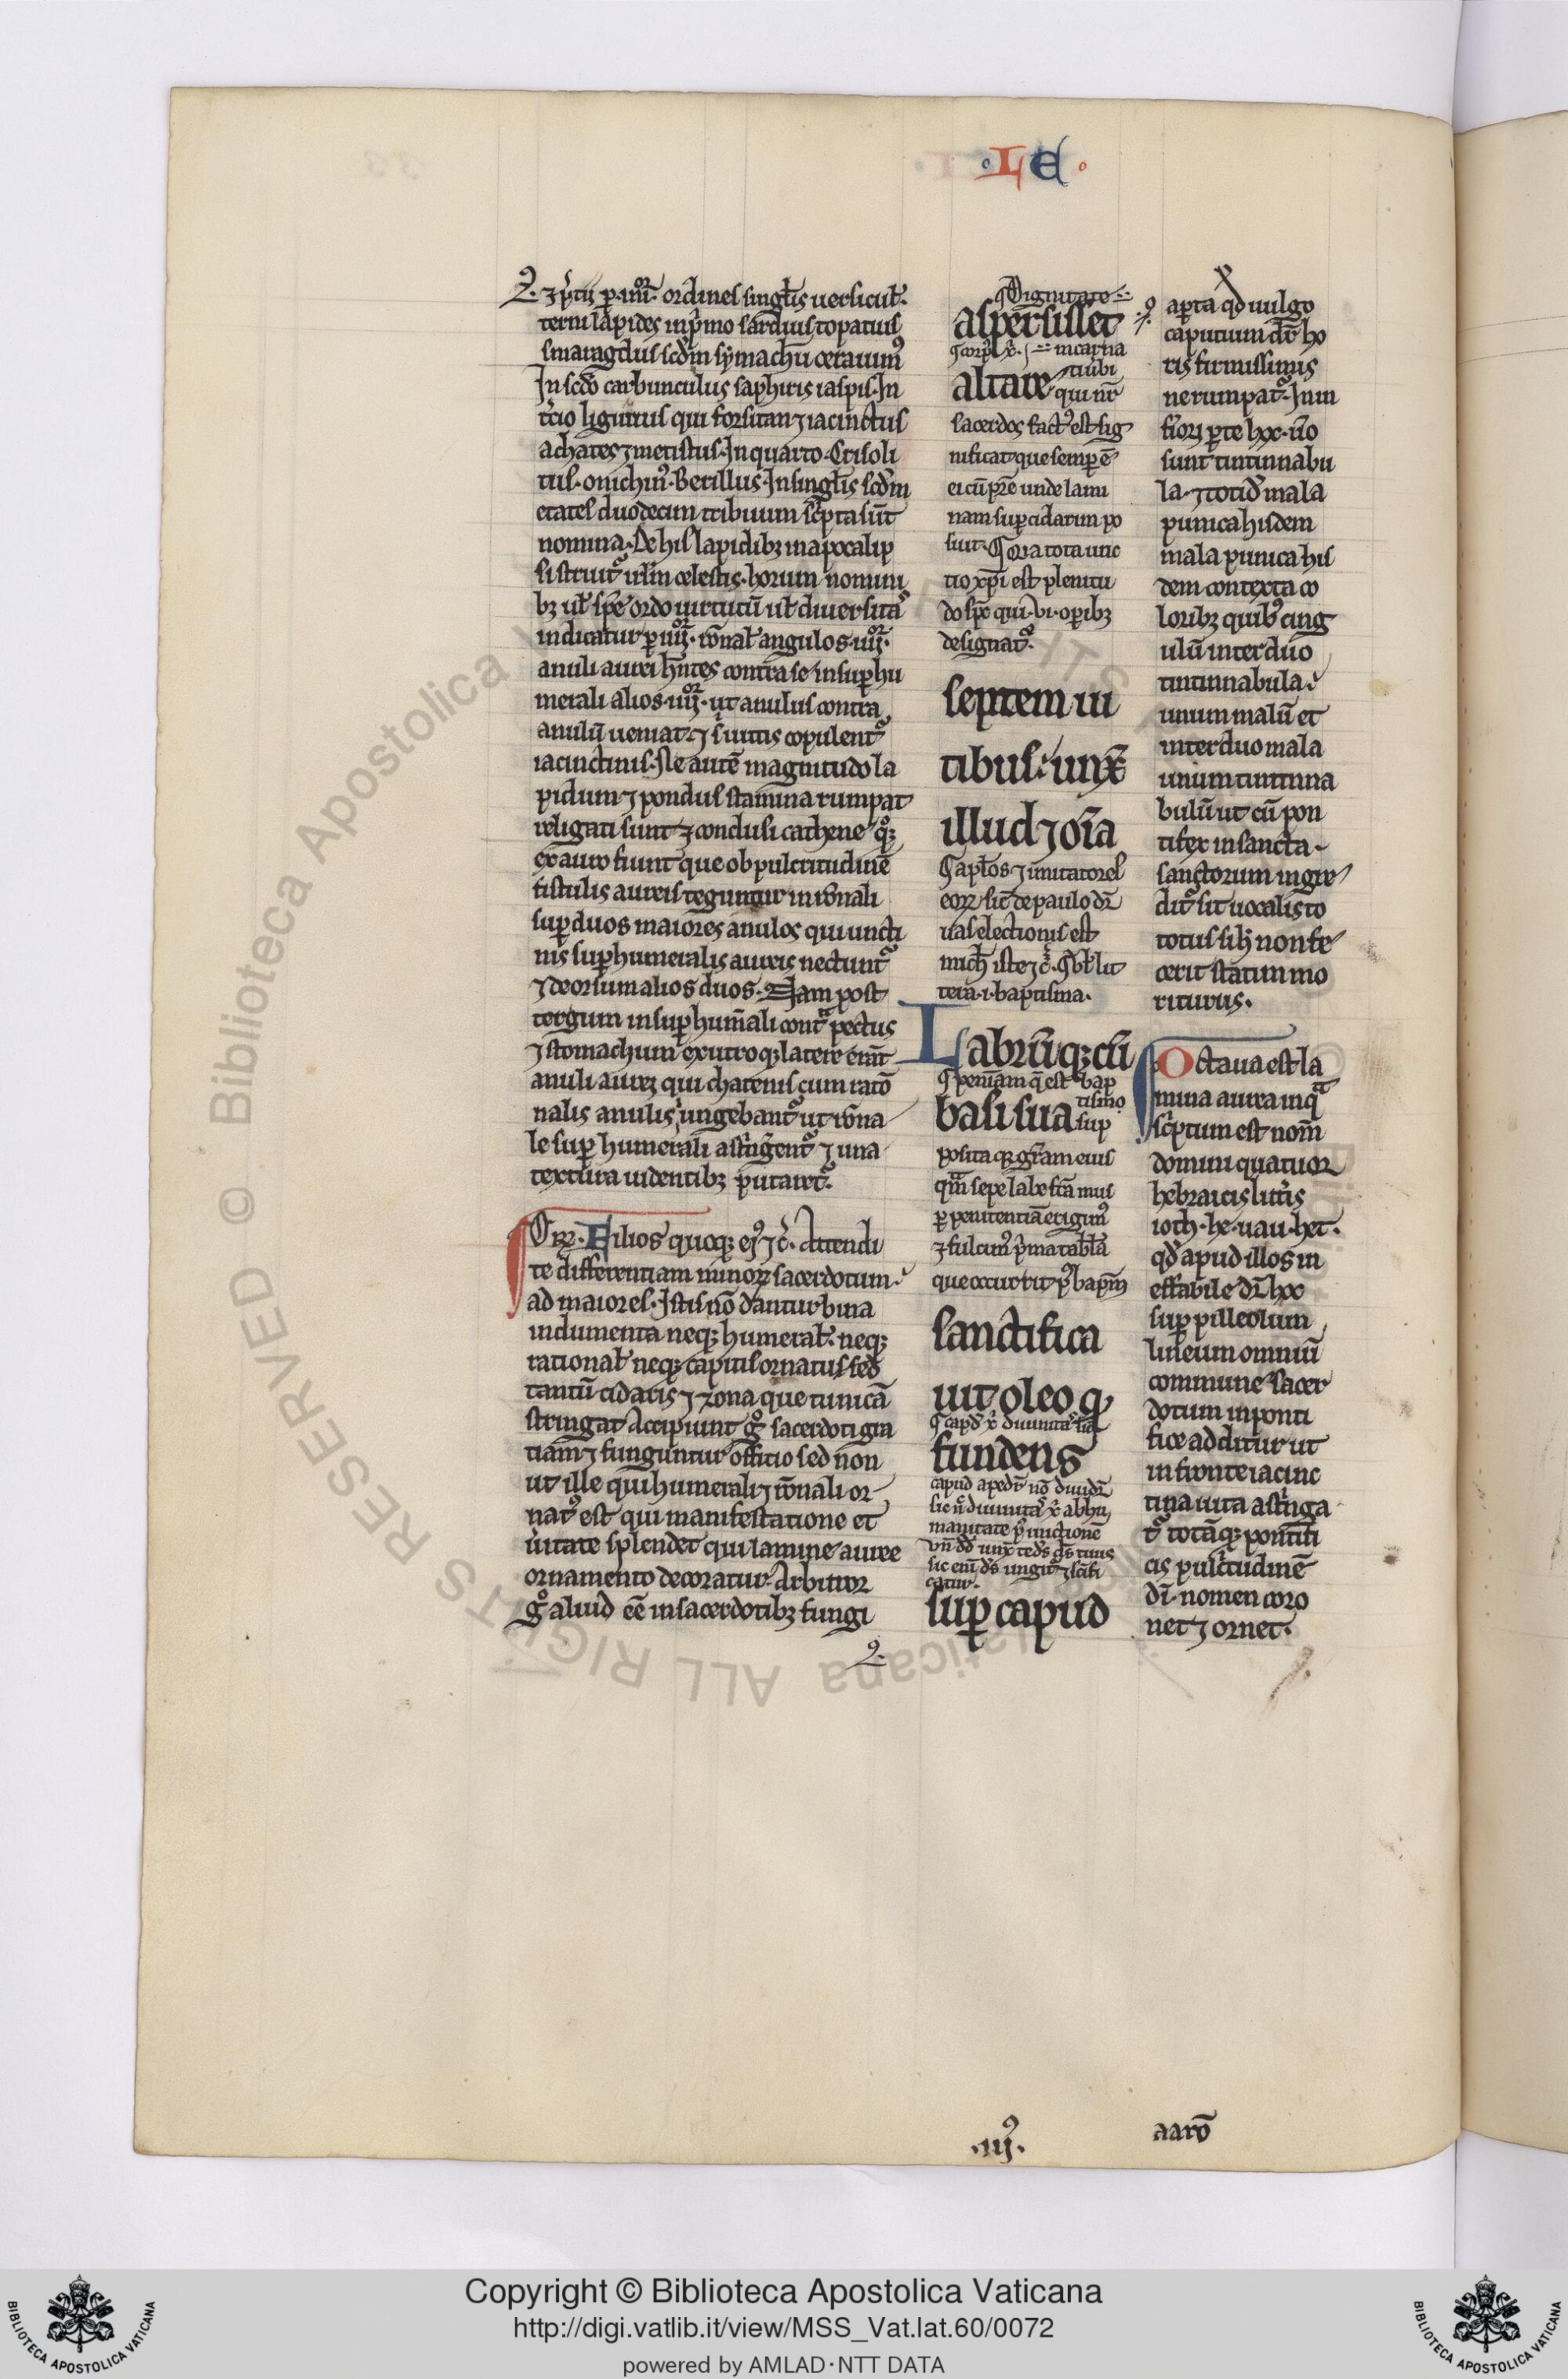 .LE.
⁊ p̃cii p .iiii. ordines singłis uersicuł.
terni lapides in p̃mo sardius topatius
smaragdus scd̃m symachũ cerauni9
In scd̃o carbunculus saphirus iaspis. In
t̃cio ligurius qui forsitan ⁊ iacinctus
achates ⁊ metistus. In quarto. Crisoli
tus. onichin9. Berillus. In singłis scd̃m
etates duodecim tribuum sc̃pta sũt
nomina. De his lapidibꝫ in apocalip
si struit᷑ irłm celestis. horum nomini
bꝫ uł sp̃e ordo uirtutũ uł diuersitas
indicatur p iiii. rõnał angulos. iiii.
anuli aurei hñtes contra se in suphu
merali alios. iiii. ut anulus contra
anulũ ueniat ⁊ sĩ uittis copulent᷑
iacinctinis. Ne autẽ magnitudo la
pidum ⁊ pondus stamina rumpat
religati sunt ⁊ conclusi cathene qꝫ
ex auro fiunt que ob pulcritudinẽ
fistulis aureis teguntur in rõnali
sup duos maiores anulos qui uncti
nis suphumeralis aureis nectunt᷑
⁊ deorsum alios duos. Nam post
tergum in suphum̃ali cont̃ pectus
⁊ stomachum ex utroqꝫ latere erãt
anuli aurei qui chatenis cum ratõ
nalis anulis iungebant᷑ ut rõna
le sup humerali ast̃ngent᷑ ⁊ una
textura uidentibꝫ putaret᷑.
Orꝫ. Filios quoqꝫ ei9 ⁊c̃. Attendi
te differentiam minorꝫ sacerdotum
ad maiores. Istis nõ dantur bina
indumenta neqꝫ humerał. neqꝫ
rationał neqꝫ capitis ornatus sed
tantũ cidaris ⁊ zona que tunicã
stringat Accipiunt g̊ sacerdotii gra
tiam ⁊ funguntur offitio sed non
ut ille qui humerali ⁊ rõnali or
nat9 est qui manifestatione et
ũitate splendet qui lamine auree
ornamento decoratur. Arbitror
g̊ aliud eẽ in sacerdotibꝫ fungi
Dignitate
aspersisset
corp9 x̃. incarna
altare tiui ubi
qui nr̃
sacerdos fact9 est sig
nificat que semp ẽ
ei cũ p̃re unde lami
nam sup cidarim po
suit. Qͣ tota unc
tio xp̃i est plenitu
do sp̃s qui. vi. opibꝫ
designat᷑.
septem ui
tibus. unx̃
illud ⁊ om̃ia
Apłos ⁊ imitatores
eorꝫ sic̃ de paulo dr̃
uas electionis est
mich iste ⁊c̃. Vł lit
tera .i. baptisma.
Labrũqꝫ cũ
penitẽam q̃ est bap
basi sua tismo
sup
posita qꝫ gr̃am eius
qm̃ sepe labefcãmus
p penitentiã erigim9
⁊ fulcim9 p̃ma tabła
que occurrit p9 bapm̃
sanctifica
uit oleo q
cap9 x̃ diuinitas sua
fundens
capud a pedibꝫ nõ diuidit᷑
sic n̊ diuinitas x̃ ab hu
manitate p9 unctionẽ
vñ dd̃ unx̃ te ds̃ ds̃ tuus
sic enĩ ds̃ ungit ⁊ sc̃ifi
catur.
sup capud
aperta qd̃ uulgo
caputium dr̃ ho
ris firmissimis
ne rumpat᷑. In in
fiori pte hec. ũo
sunt tintinnabu
la. ⁊ totid̃ mala
punica hisdem
mala punica his
dem contexta co
loribꝫ quib9 cing
ulũ inter duo
tintinnabula
unum malũ et
inter duo mala
unum tintinna
bulũ ut cũ pon
tifex in sancta
sanctorum ingre
dit᷑ sit uocalis to
tus si h̃ non fe
cerit statim mo
riturus.
Octaua est la
mina aurea in qͣ
sc̃ptum est nom̃
domini quatuor
hebraicis litt̃is
ioth. he. uau. het.
qd̃ apud illos in
effabile dr̃ hec
sup pilleolum
lineum omniũ
commune sacer
dotum in ponti
fice additur ut
in fronte iacinc
tina uita ast̃nga
t᷑ totãqꝫ pontifi
cis pulc̃tudinẽ
di. nomen coro
net ⁊ ornet.
.iij9.
aarõ
Copyright © Biblioteca Apostolica Vaticana
http://digi.vatlib.it/view/MSS_Vat.lat.60/0072
powered by AMLAD·NTT DATA
BIBLIOTECA APOSTOLICA VATICANA
BIBLIOTECA APOSTOLICA VATICANA